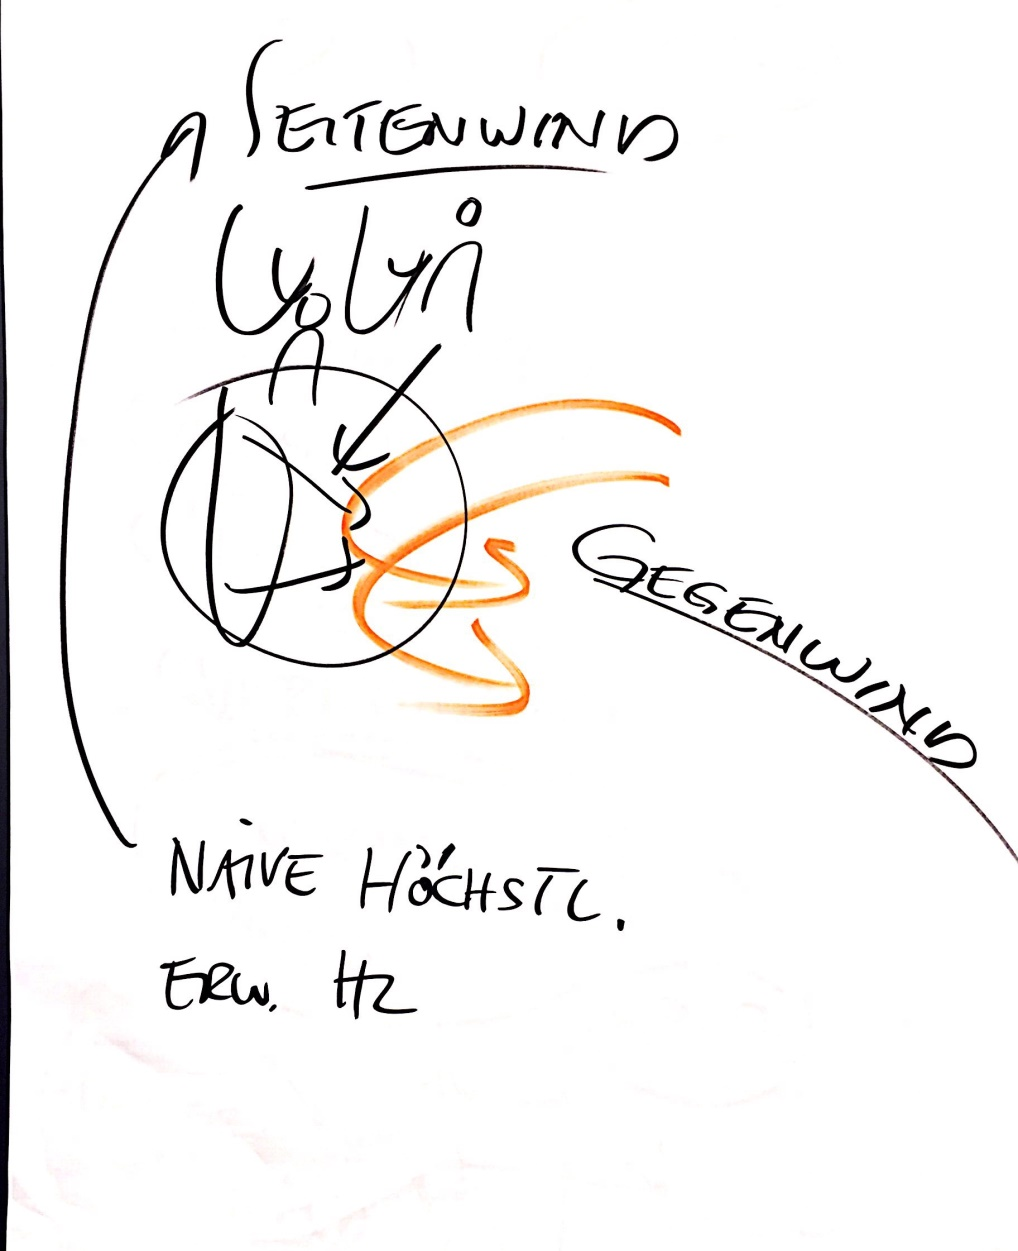 SEITENWIND
GEGENWIND
NAIVE HÖCHSTL.
ERW. HZ